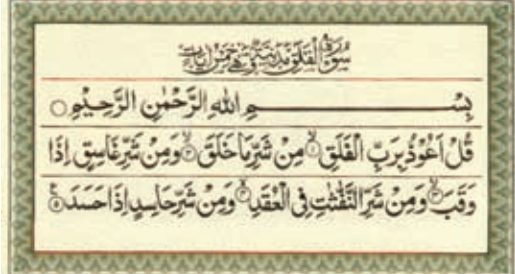 سُورَةُ الْفَلَقِ مَدَنِيَّةٌ وَّهِيَ خَمْسُ اٰيَاتٍ
بِسْمِ اللهِ الرَّحْمٰنِ الرَّحِيْمِ ○
قُلْ اَعُوْذُ بِرَبِّ الْفَلَقِ ۙ۱ مِنْ شَرِّ مَا خَلَقَ ۙ۲ وَمِنْ شَرِّ غَاسِقٍ اِذَا
وَقَبَ ۙ۳ وَمِنْ شَرِّ النَّفّٰثٰتِ فِى الْعُقَدِ ۙ۴ وَمِنْ شَرِّ حَاسِدٍ اِذَا حَسَدَ ۵